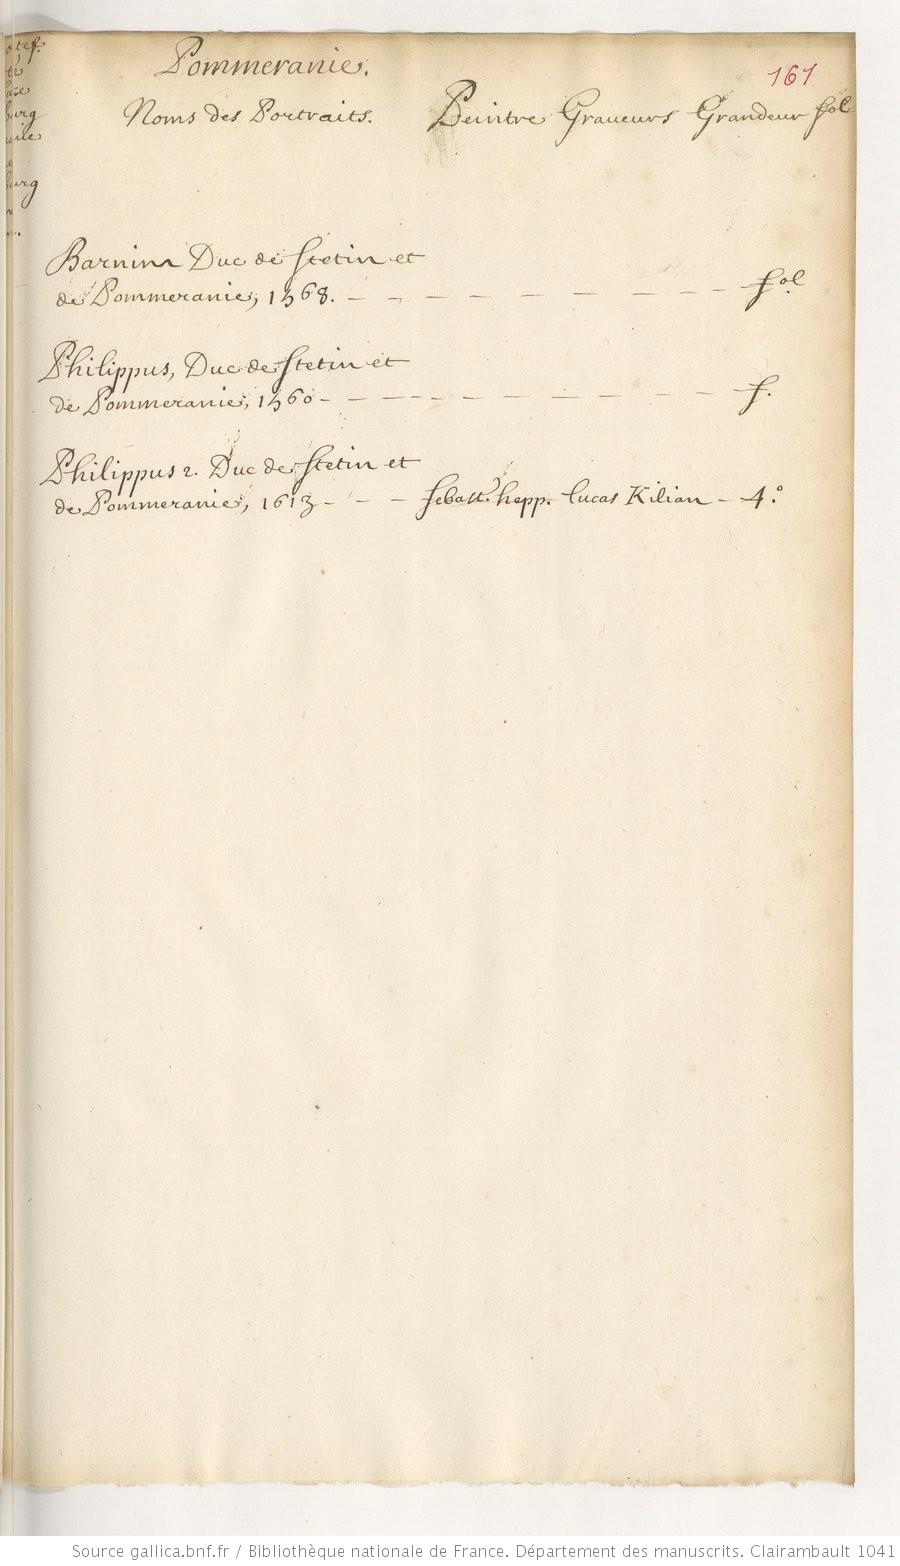 Pommeranie.
161
Noms des Portraits. Peintre Graueurs Grandeur fol
Barnim Duc de Stetin et
de Pommeranie, 1568. - - - - - - - - - fol
Philippus, Duc de Stetin et
de Pommeranie, 1560 - - - - - - - - - - f.
Philippus 2. Duc de Stetin et
de Pommeranie, 1613 - - - Sebast. hepp. Lucas Kilian - 4.°
Source gallica.bnf.fr / Bibliothèque nationale de France. Département des manuscrits. Clairambault 1041